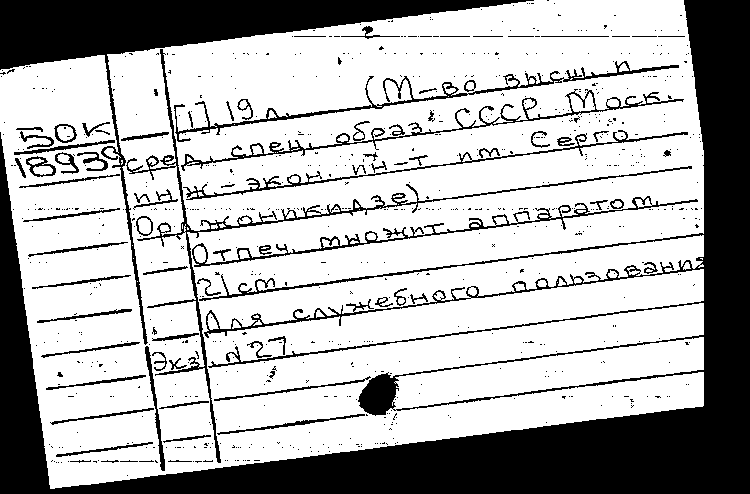 2
[1], 19 л. (М-во высш. и
50к
18939
сред. спец. образ. СССР. Моск.
инж.-экон. ин-т им. Серго
Орджоникидзе).
Отпеч. множит. аппаратом.
21 см.
Для служебного пользования
Экз. № 27.